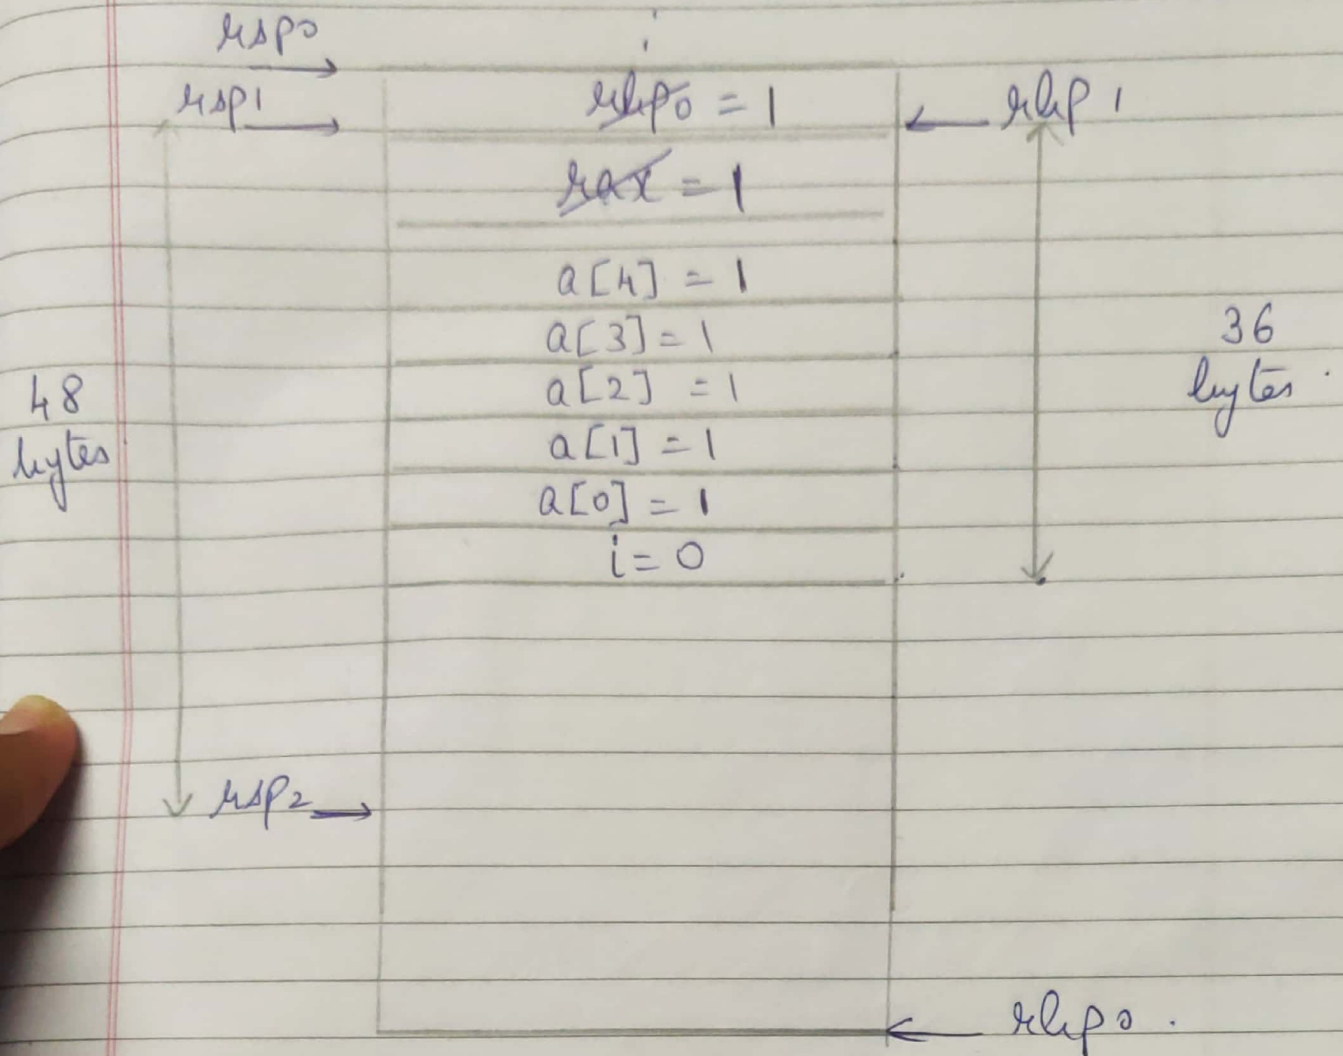 rsp0
rsp1
rbp0 = 1
rbp1
rax = 1
a[4] = 1
a[3] = 1
a[2] = 1
a[1] = 1
a[0] = 1
i = 0
48
bytes
36
bytes.
rsp2
rbp0.